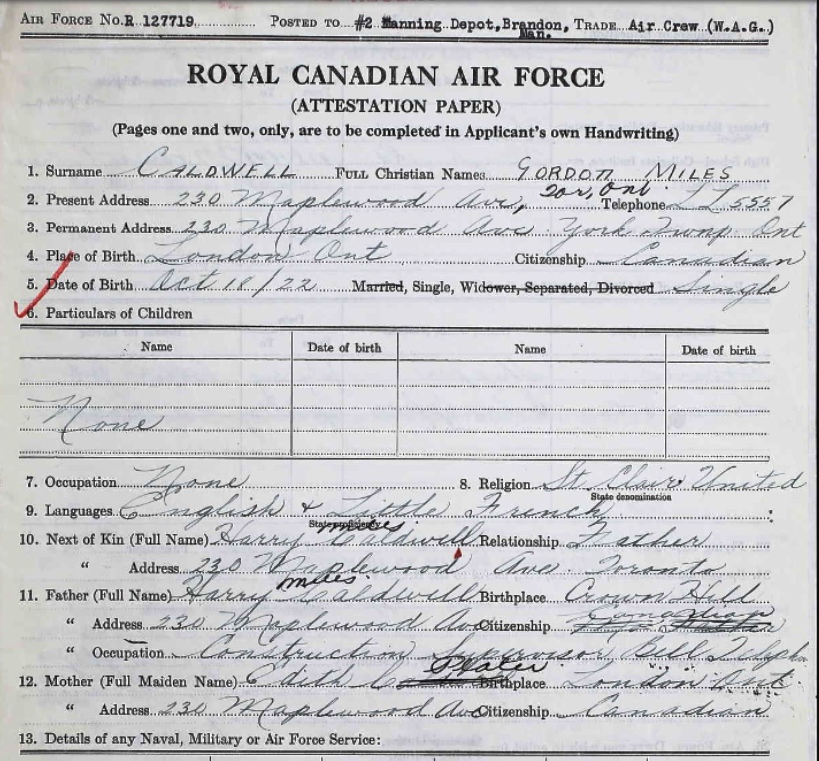 AIR FORCE No. R 127719 POSTED TO #2 Manning Depot, Brandon, Man. TRADE Air Crew (W.A.G.)
ROYAL CANADIAN AIR FORCE
(ATTESTATION PAPER)
(Pages one and two, only, are to be completed in Applicant's own Handwriting)
1. Surname CALDWELL FULL Christian Names GORDON MILES
2. Present Address 230 Maplewood Ave, Tor, Ont. Telephone LL 5557
3. Permanent Address 230 Maplewood Ave York Twnp Ont
4. Place of Birth London Ont Citizenship Canadian
5. Date of Birth Oct 18/22 Married, Single, Widower, Separated, Divorced Single
6. Particulars of Children
Name Date of birth Name Date of birth
None
7. Occupation None 8. Religion St. Clair United
State denomination
9. Languages English & Little French
State proficiency
10. Next of Kin (Full Name) Harry Miles Caldwell Relationship Father
" Address 230 Maplewood Ave. Toronto
11. Father (Full Name) Harry Miles Caldwell Birthplace Crown Hill
" Address 230 Maplewood Ave Citizenship Canadian
" Occupation Construction Supervisor Bell Teleph
12. Mother (Full Maiden Name) Edith Slater Birthplace London Ont.
" Address 230 Maplewood Ave Citizenship Canadian
13. Details of any Naval, Military or Air Force Service: